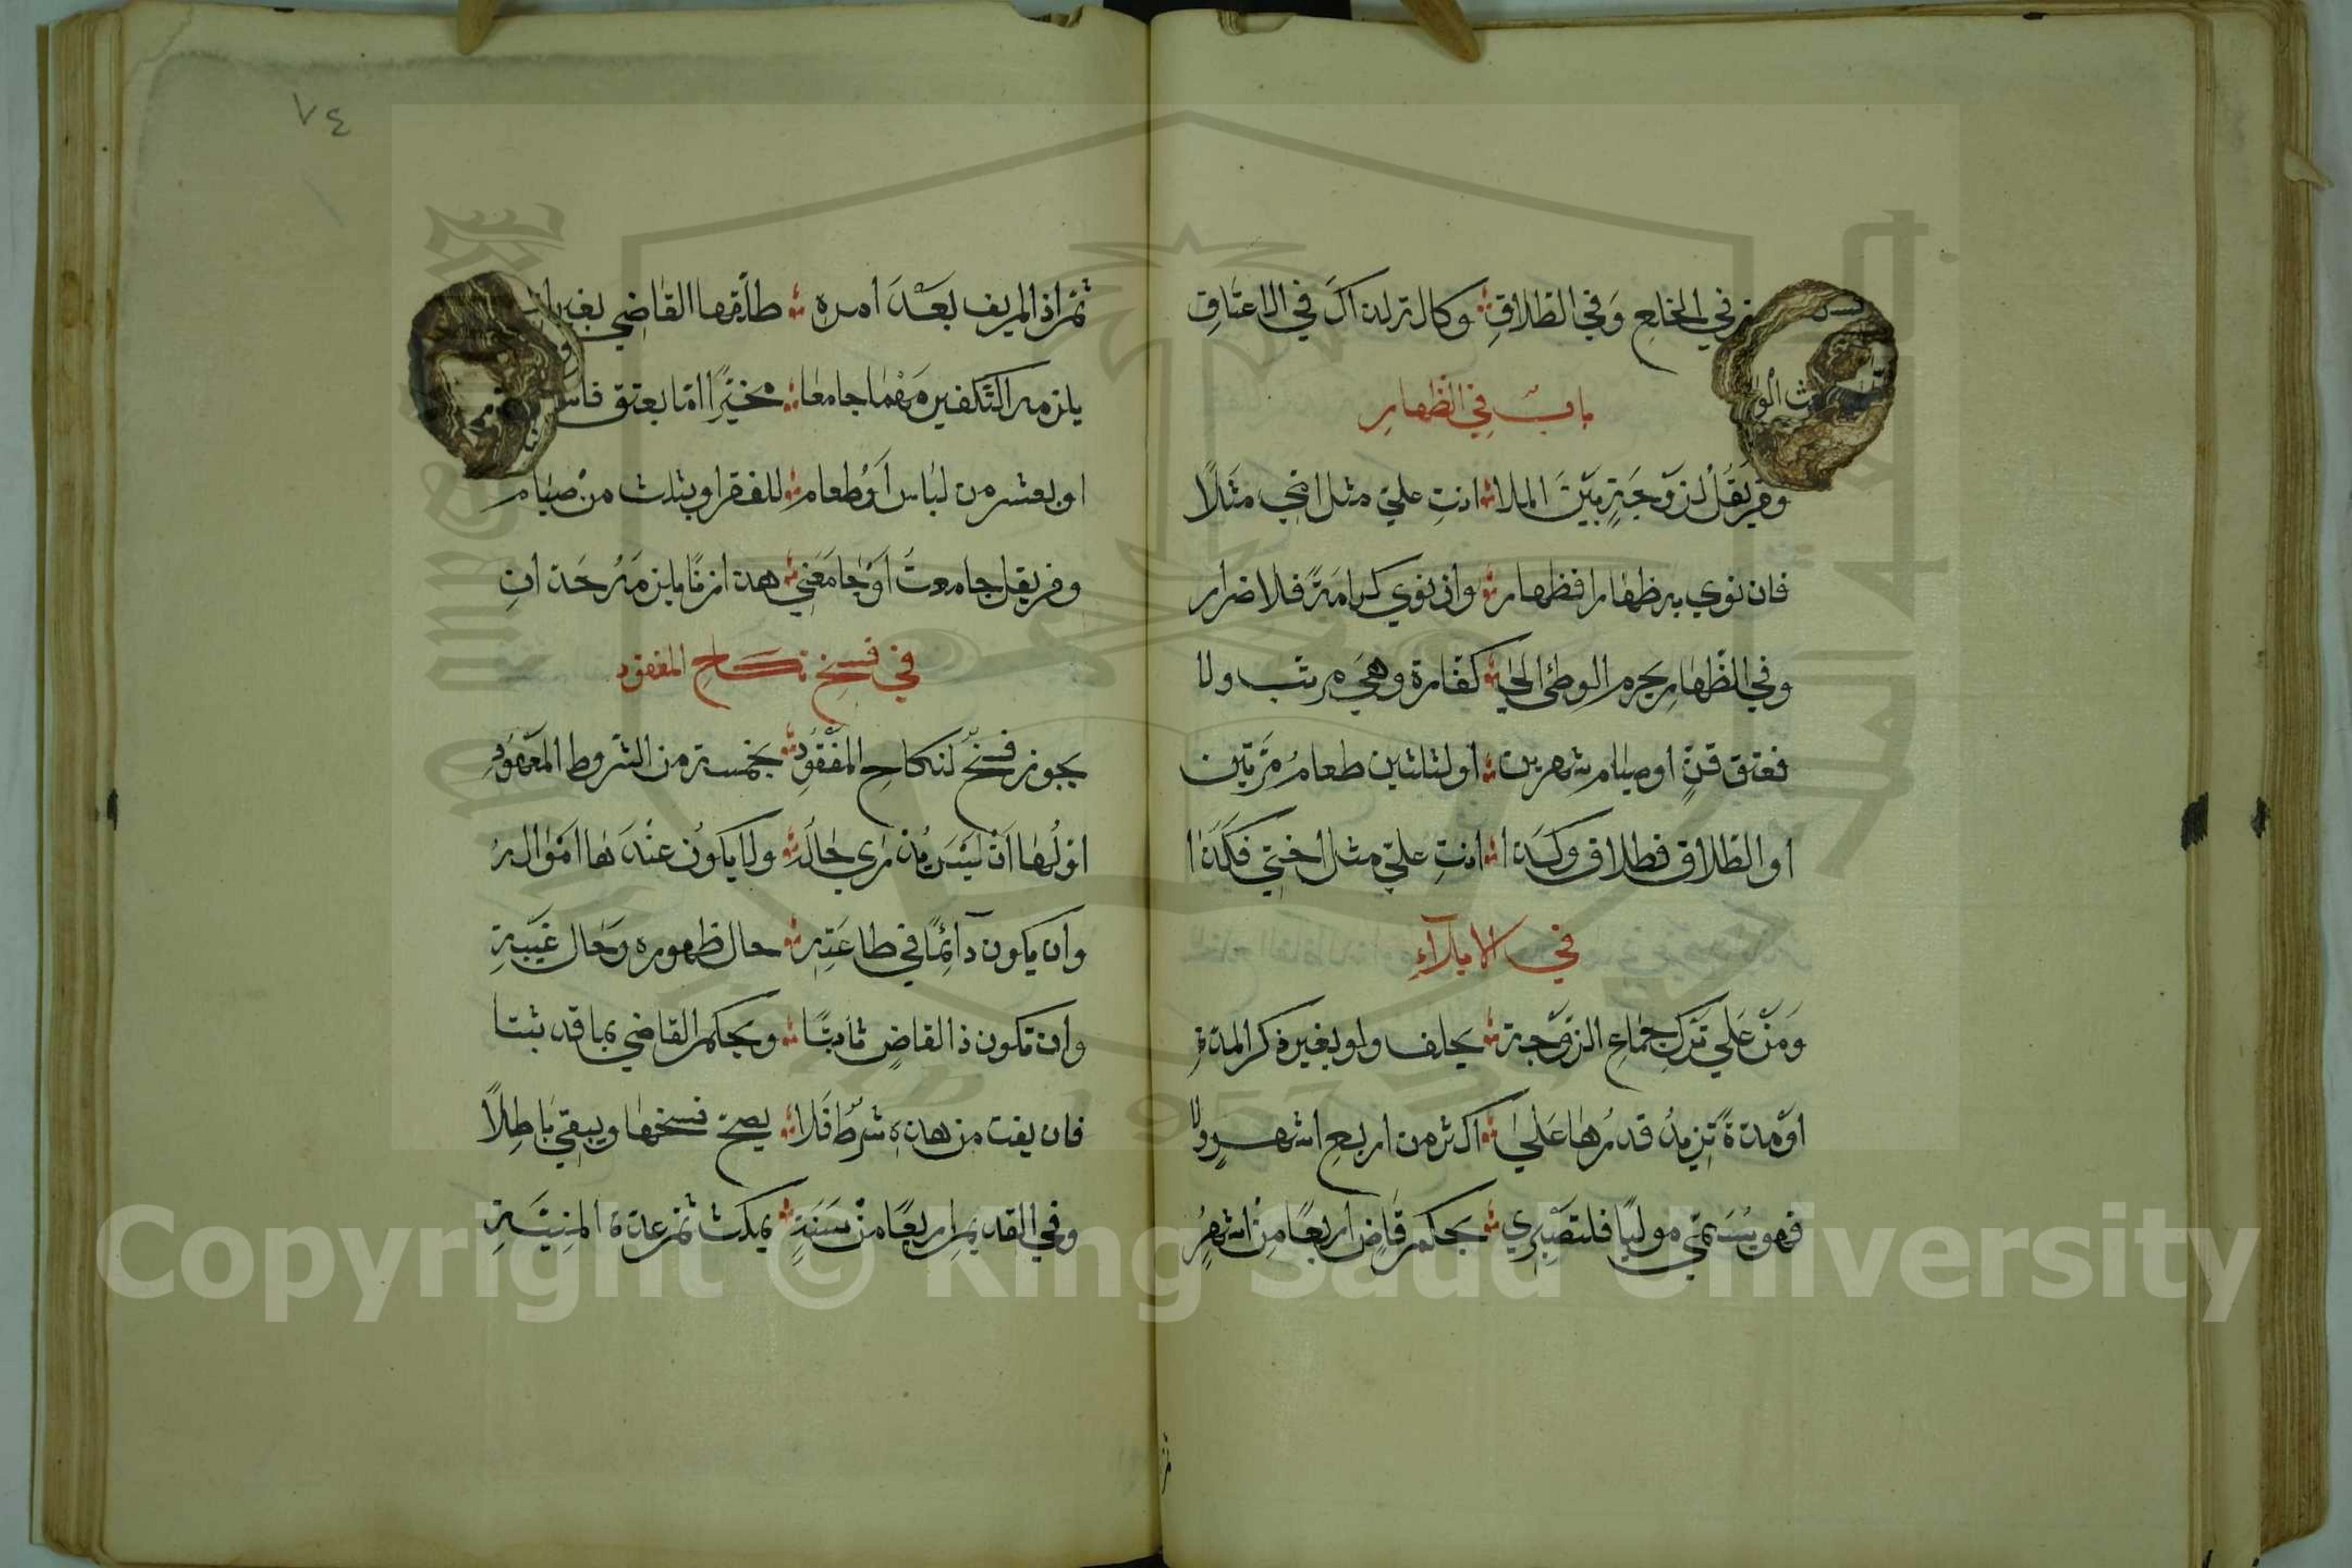 في الخلع وَفي الطلاقِ وكالتزله اكَ في الاعتَاقِ
باب في الظهارِ
ومن يَقُلْ لزوْجَةٍ بيْنَ الملا انتِ عليّ مثل امّي مثَلًا
فان نوي به ظهارا فظهار وان نوي كرامَةً فلا ضرار
وفي الظّهارِ يحرم الوطئ الي كفّارة وهيَ مرتب ولا
فعتق قنٍ او صيام شهرين او لثلثين طعامُ مَرّتين
او الطّلاق فطلاق وكَذا انتِ عليّ مثل اختي فكَذا
في الايلآءِ
وَمَنْ عَلي تَركِ جماعِ الزوْجة يحلف ولو بغير ذكر المدةِ
اوْ مدةً تزيدُ قدرُها عَلي اكثر من اربعِ اشهرٍ ولا
فهو يُسَمّي موليًا فلتصْبري يحكم قاضٍ اربعًا مِنْ اشهرٍ
ثم
٧٤
ثمّ اذا لم يف بَعْدَ امره طلّقها القاضي بغير
يلزمه التكفير مَهْما جامعا مخيّرًا امّا بعتق
او بعشر من لباس أوْ طعام للفقرا وبثلث منْ صيام
ومن يقل جامعتُ أوْ جامَعَني هذا زنًا يلزمَهُ حَد
في فسخِ نكاحِ المفقود
يجوز فسْخٌ لنكاحِ المفْقودِ بخمسة من الشروط المَعْهودِ
اوّلُها انْ ليْسَ يُدْرَي حالَه ولا يكونُ عنْدَها امْوالُه
وان يكون دآئمًا في طاعَتِه حال ظهوره وَحال غيْبَةِ
وان تكون ذا القاضِ ثابتًا ويحكم القاضي بما قد ثبتا
فان يفت من هذه شرْطٌ فَلا يصحّ فسخها ويبقي باطِلًا
وفي القديمِ اربعًا منْ سَنَةٍ يمكث ثمّ عدة المنِيّةِ
Copyright © King Saud University
1957